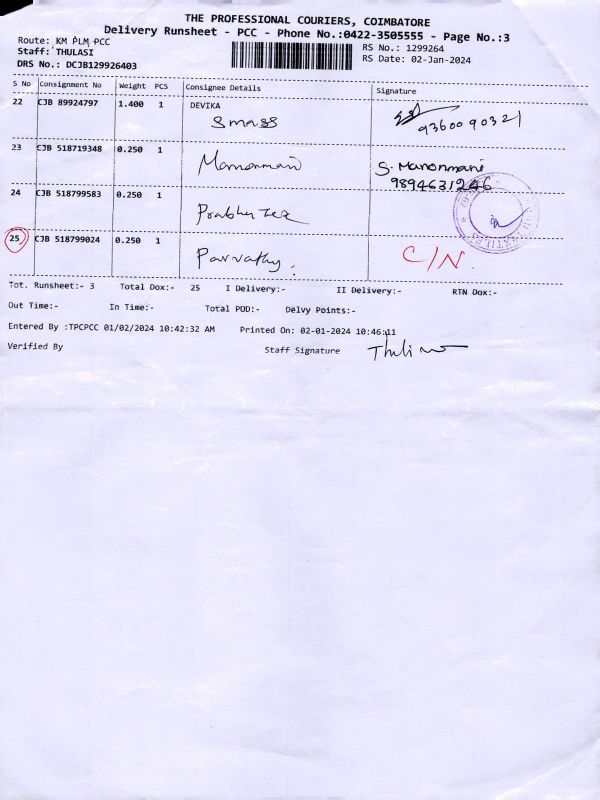 THE PROFESSIONAL COURIERS, COIMBATORE
Delivery Runsheet - PCC - Phone No.:0422-3505555 - Page No.:3
Route: KM PLM PCC
Staff: THULASI
DRS No.: DCJB129926403
RS No.: 1299264
RS Date: 02-Jan-2024
S No Consignment No Weight PCS Consignee Details Signature
22 CJB 89924797 1.400 1 DEVIKA
Smass
9360090321
23 CJB 518719348 0.250 1 Manonmani S. Manonmani
9894631246
24 CJB 518799583 0.250 1 Prabhu Tex
25 CJB 518799024 0.250 1 Parvathy. C/N.
Tot. Runsheet:- 3 Total Dox:- 25 I Delivery:- II Delivery:- RTN Dox:-
Out Time:- In Time:- Total POD:- Delvy Points:-
Entered By :TPCPCC 01/02/2024 10:42:32 AM Printed On: 02-01-2024 10:46:11
Verified By Staff Signature